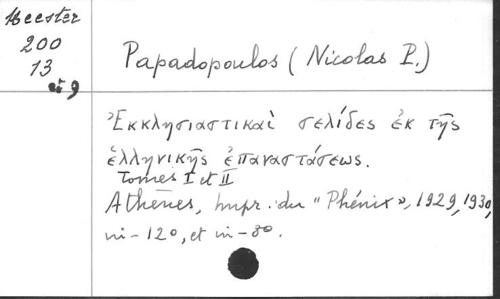 Meester
200
13
et 9
Papadopoulos (Nicolas P.)
Ἐκκλησιαστικαὶ σελίδες ἐκ τῆς
ἑλληνικῆς ἐπαναστάσεως.
Tomes I et II
Athènes, Impr. du "Phénix", 1929, 1930,
in-12°, et in-8°.